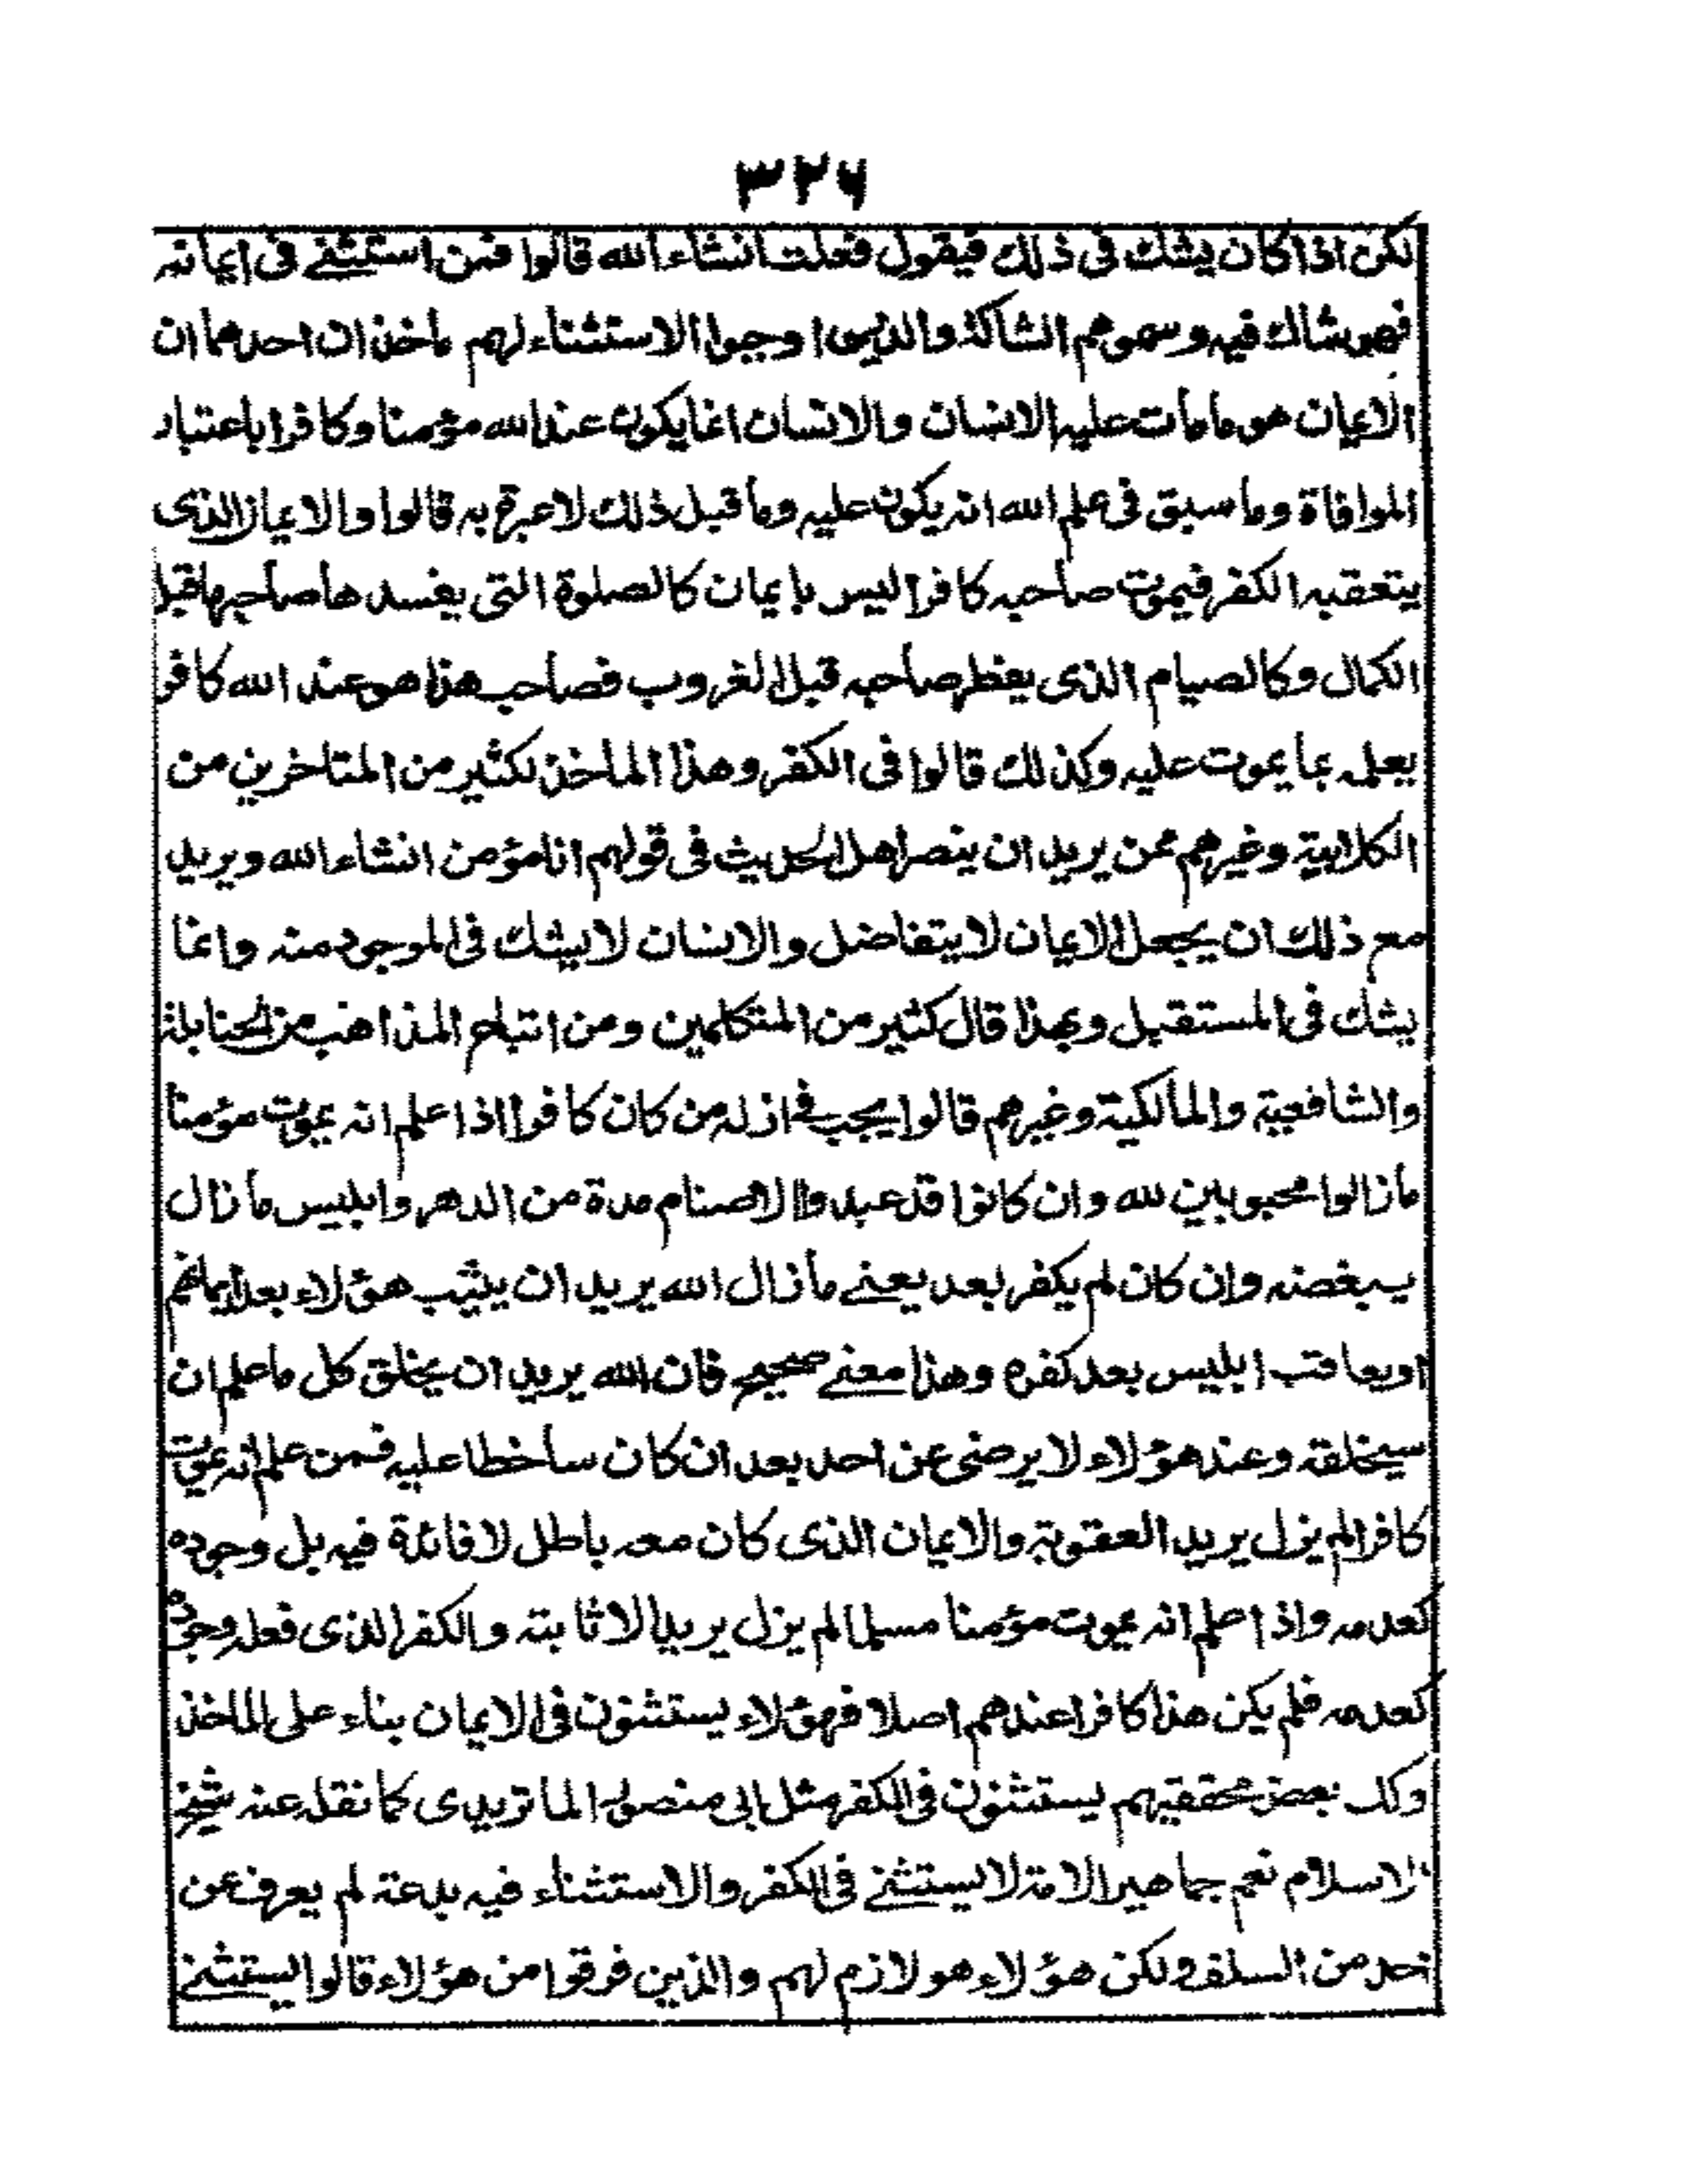 ٣٢٦
لكن اذا كان يشك فى ذلك فيقول فعلت انشاء الله قالوا فمن استثنے فى ايمانه
فهو شاك فيه وسموهم الشاكة والذين اوجبوا الاستثناء لهم ماخذان احدهما ان
الايمان هو ما مات عليه الانسان والانسان انما يكون عند الله مؤمنا وكافرا باعتبار
الموافاة وما سبق فى علم الله انه يكون عليه وما قبل ذلك لا عبرة به قالوا والايمان الذى
يتعقبه الكفر فيموت صاحبه كافرا ليس بايمان كالصلوة التى يفسدها صاحبها قبل
الكمال وكالصيام الذى يفطر صاحبه قبل الغروب فصاحب هذا هو عند الله كافر
يعلمه بما يموت عليه وكذلك قالوا فى الكفر وهذا الماخذ لكثير من المتاخرين من
الكلابية وغيرهم ممن يريد ان ينصر اهل الحديث فى قولهم انا مؤمن انشاء الله ويريد
مع ذلك ان يجعل الايمان لا يتفاضل والانسان لا يشك فى الموجود منه وانما
يشك فى المستقبل وبهذا قال كثير من المتكلمين ومن اتباع المذاهب من الحنابلة
والشافعية والمالكية وغيرهم قالوا يجب فى ازله من كان كافرا اذا علم انه يموت مؤمنا
ما زالوا محبوبين لله وان كانوا قد عبدوا الاصنام مدة من الدهر وابليس ما زال
يبغضه وان كان لم يكفر بعد يعنے ما زال الله يريد ان يثيب هؤلاء بعد ايمانهم
او يعاقب ابليس بعد كفره وهذا معنے صحيح فان الله يريد ان يخلق كل ما علم ان
سيخلقه وعند هؤلاء لا يرضى عن احد بعد ان كان ساخطا عليه فمن علم انه يموت
كافرا لم يزل يريد العقوبة والايمان الذى كان معه باطل لا فائدة فيه بل وجوده
كعدمه واذا علم انه يموت مؤمنا مسلما لم يزل يريد الاثابته والكفر الذى فعله وجوده
كعدمه فلم يكن هذا كافرا عندهم اصلا فهؤلاء يستثنون فى الايمان بناء على الماخذ
وكك بعض محققيهم يستثنون فى الكفر مثل ابى منصور الماتريدى كما نقله عنه شيخ
الاسلام نعم جماهير الامة لا يستثنے فى الكفر والاستثناء فيه بدعة لم يعرف عن
احد من السلف ولكن هؤلاء هو لازم لهم والذين فرقوا من هؤلاء قالوا يستثنے